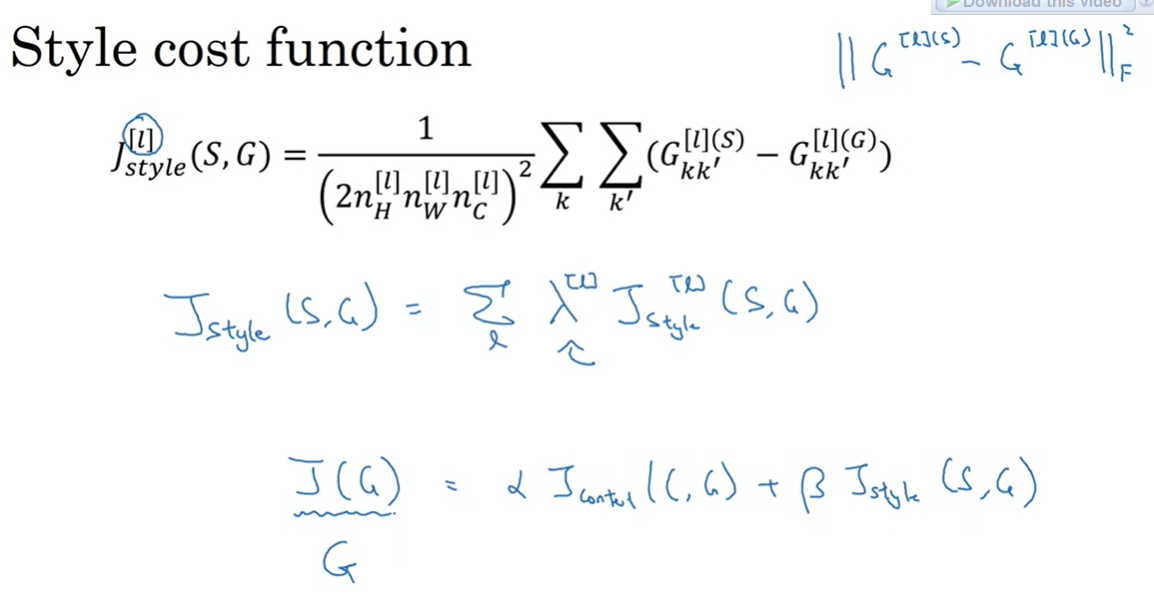 Download this video
Style cost function
‖G^{[l](S)} − G^{[l](G)}‖_F^2
J_{style}^{[l]}(S, G) = \frac{1}{(2n_H^{[l]} n_W^{[l]} n_C^{[l]})^2} ∑_k ∑_{k′} (G_{kk′}^{[l](S)} − G_{kk′}^{[l](G)})
J_{style}(S,G) = ∑_l λ^{[l]} J_{style}^{[l]}(S,G)
J(G) = α J_{content}(C,G) + β J_{style}(S,G)
G